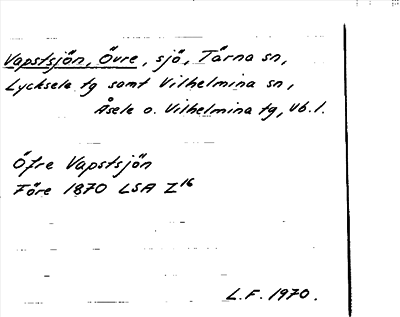 Vapstsjön, Övre, sjö, Tärna sn,
Lycksele tg samt Vilhelmina sn,
Åsele o. Vilhelmina tg, Vb. l.
Öfre Vapstsjön
Före 1870 LSA Z16
L.F. 1970.